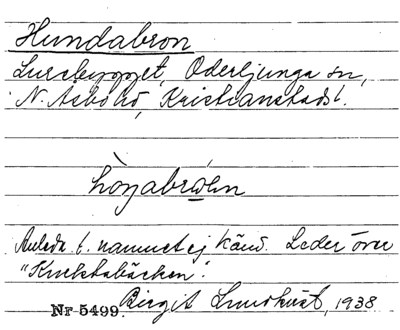 Hundabron
Lursbygget, Oderljunga sn,
N. Åsbo hd, Kristianstads l.
Anledn t. namnet ej känd. Leder över
"Kruksabäcken".
Nr 5499. Birgit Lundkvist, 1938